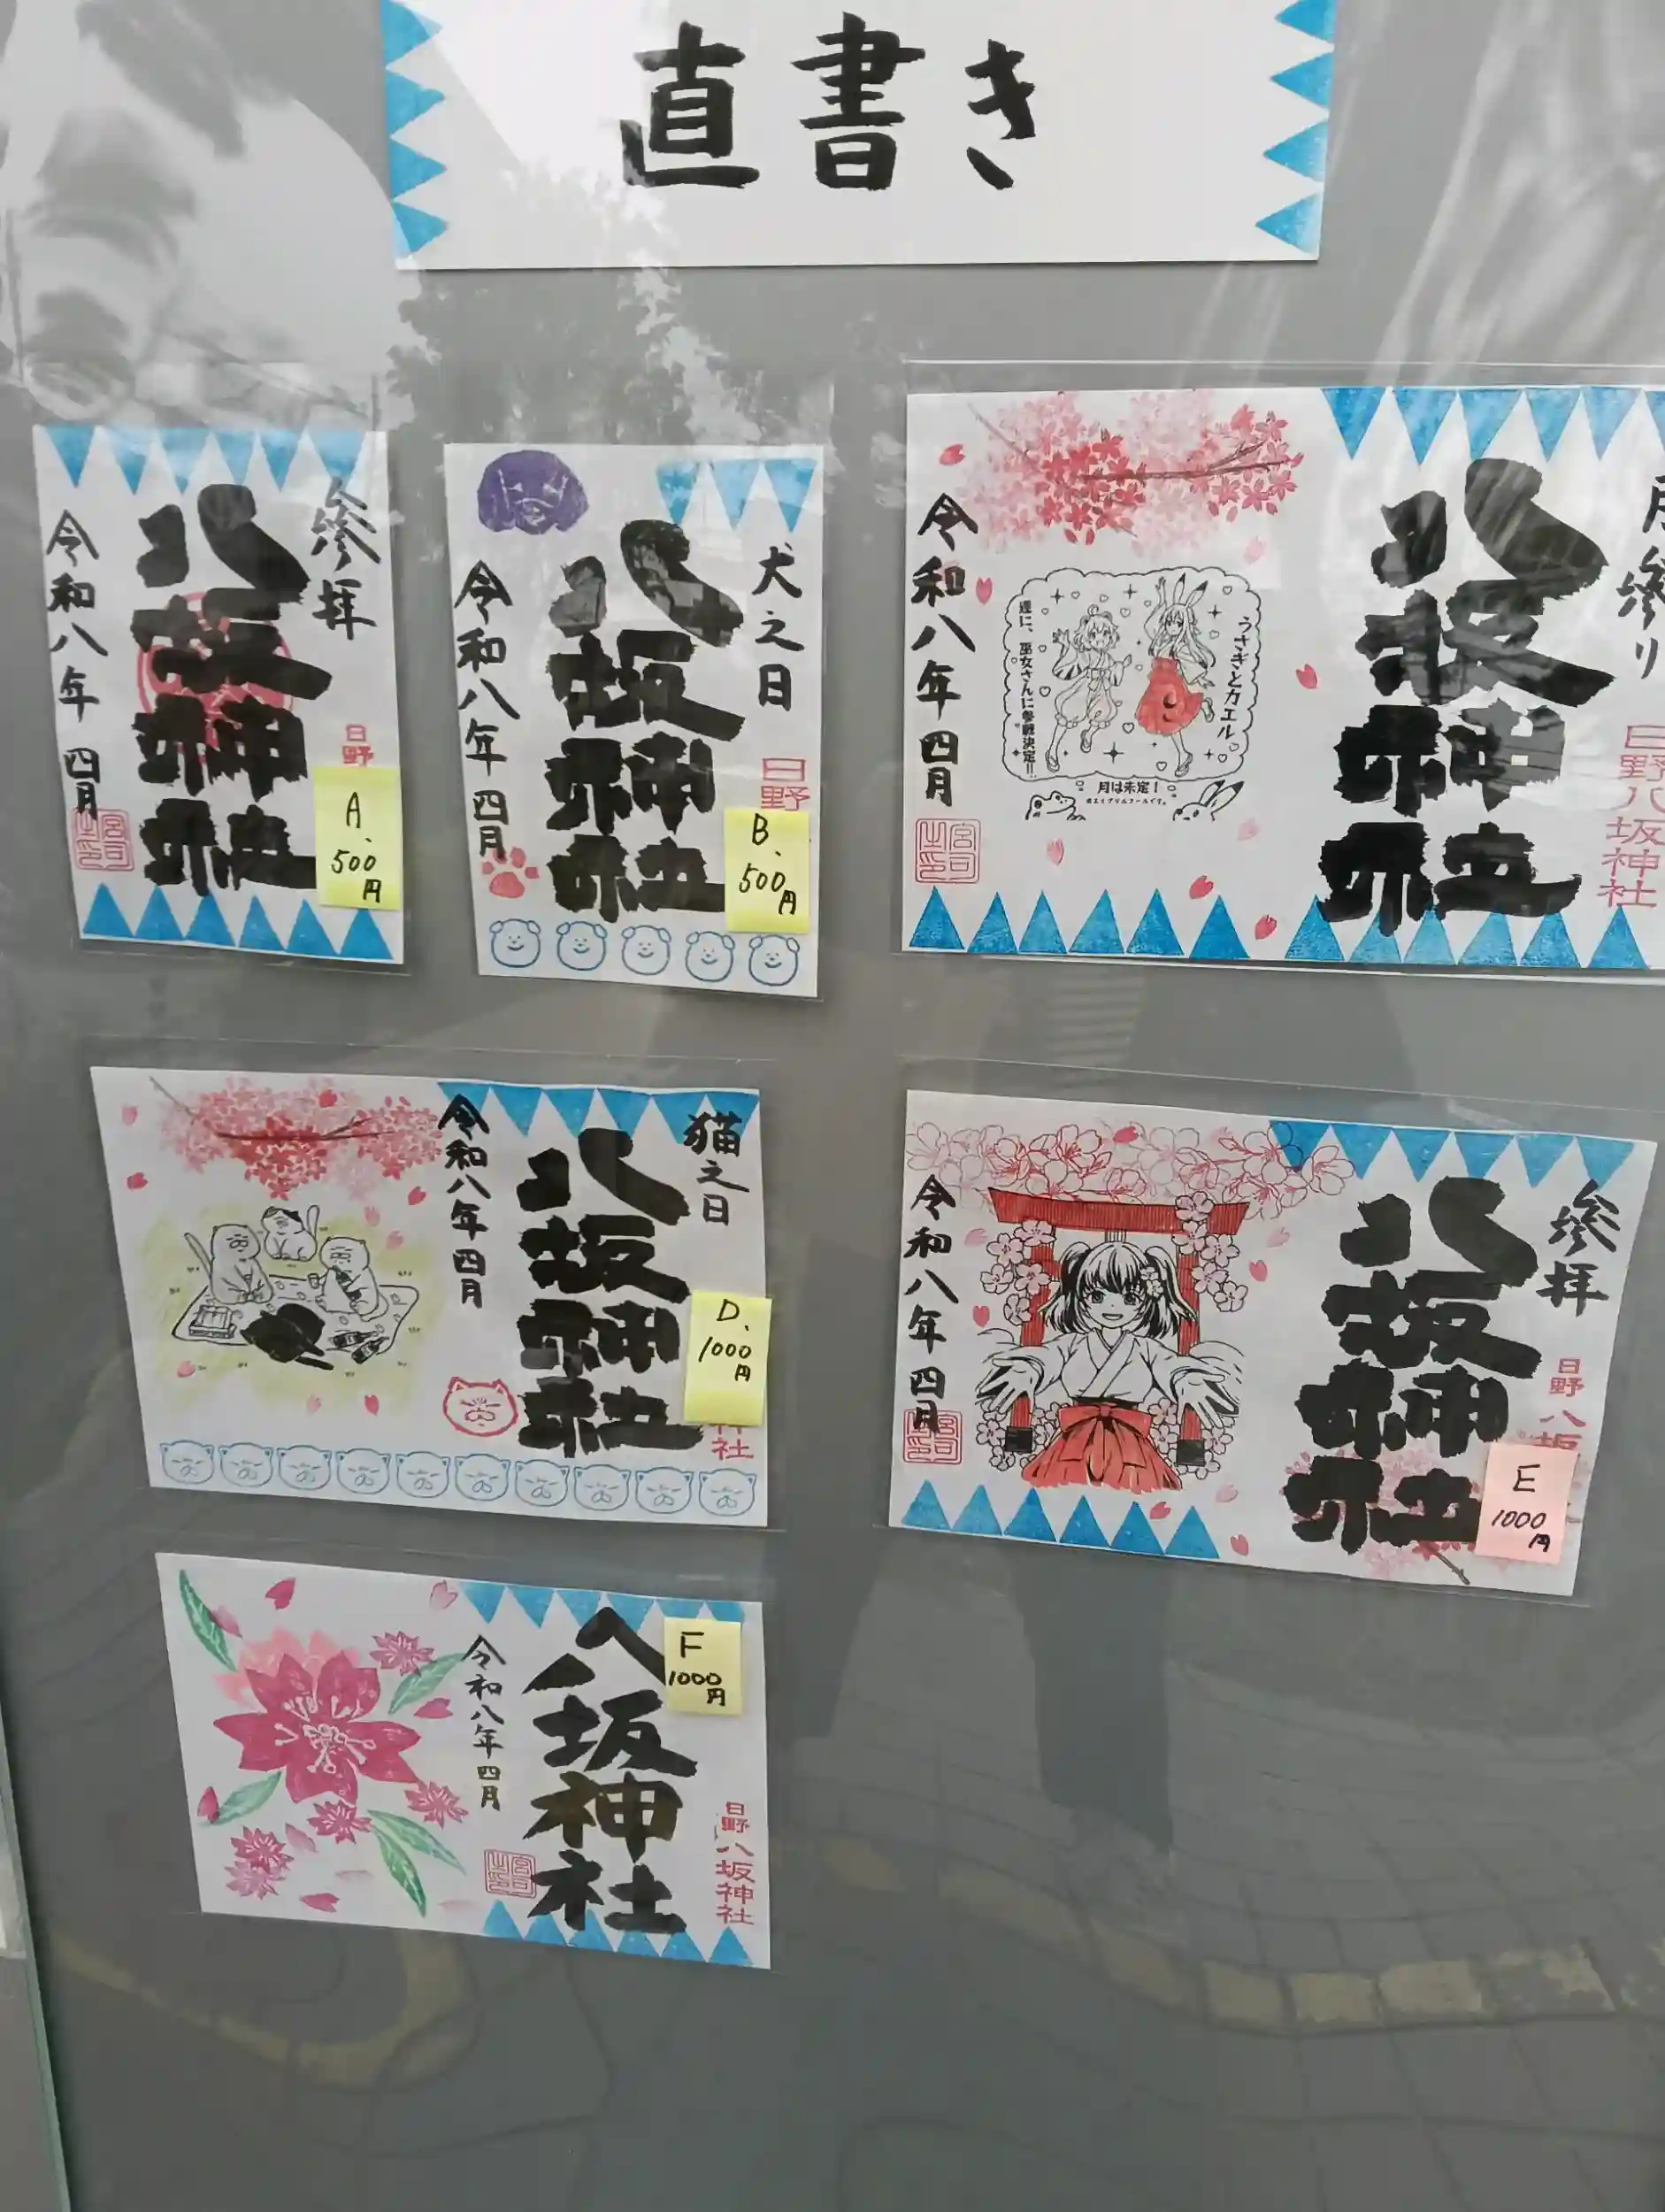 直書き
参拝
八坂神社
令和八年 四月
日野
A、
500
円
犬之日
八坂神社
令和八年 四月
日野
B、
500
円
月参り
八坂神社
日野八坂神社
令和八年 四月
うさぎとカエル
遂に、巫女さんに参戦決定!!
月は未定!
※エイプリルフールです。
猫之日
八坂神社
令和八年四月
D、
1000
円
神社
参拝
八坂神社
令和八年 四月
日野八坂
E
1000
円
八坂神社
令和八年四月
F
1000
円
日野八坂神社